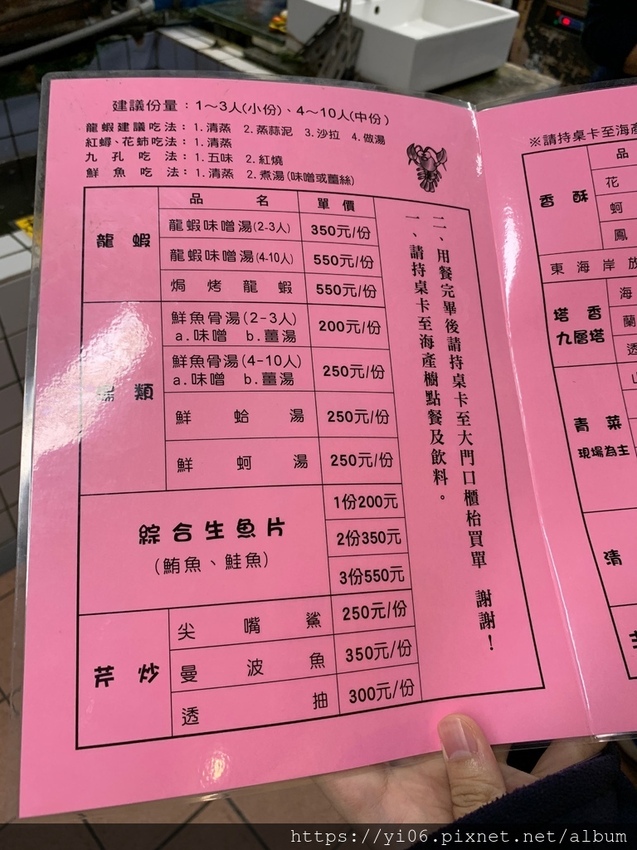 建議份量：1～3人(小份)、4～10人(中份)
龍蝦建議吃法：1.清蒸 2.蒸蒜泥 3.沙拉 4.做湯
紅蟳、花蚋吃法：1.清蒸
九孔吃法：1.五味 2.紅燒
鮮魚吃法：1.清蒸 2.煮湯(味噌或薑絲)
品名 單價
龍蝦
龍蝦味噌湯(2-3人) 350元/份
龍蝦味噌湯(4-10人) 550元/份
焗烤龍蝦 550元/份
類
鮮魚骨湯(2-3人)
a.味噌 b.薑湯
200元/份
鮮魚骨湯(4-10人)
a.味噌 b.薑湯
250元/份
鮮蛤湯 250元/份
鮮蚵湯 250元/份
綜合生魚片
(鮪魚、鮭魚)
1份200元
2份350元
3份550元
芹炒
尖嘴鯊 250元/份
曼波魚 350元/份
透抽 300元/份
一、請持桌卡至海產櫥點餐及飲料。
二、用餐完畢後請持桌卡至大門口櫃枱買單 謝謝！
※請持桌卡至海產
品
香酥
花
蚵
鳳
東海岸放
塔香
九層塔
海
蘭
透
青菜
現場為主
山
清
https://yi06.pixnet.net/album